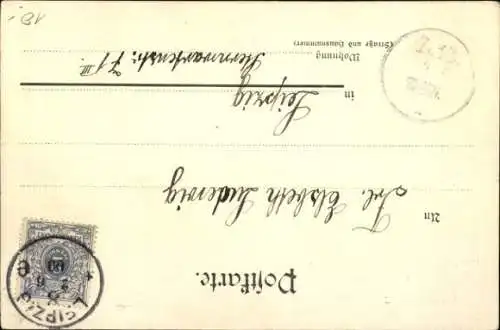 Postkarte.
An Frl. Elsbeth Ludewig
in Leipzig
Wohnung
(Straße und Hausnummer)
Sternwartenstr. 71 III
LEIPZIG